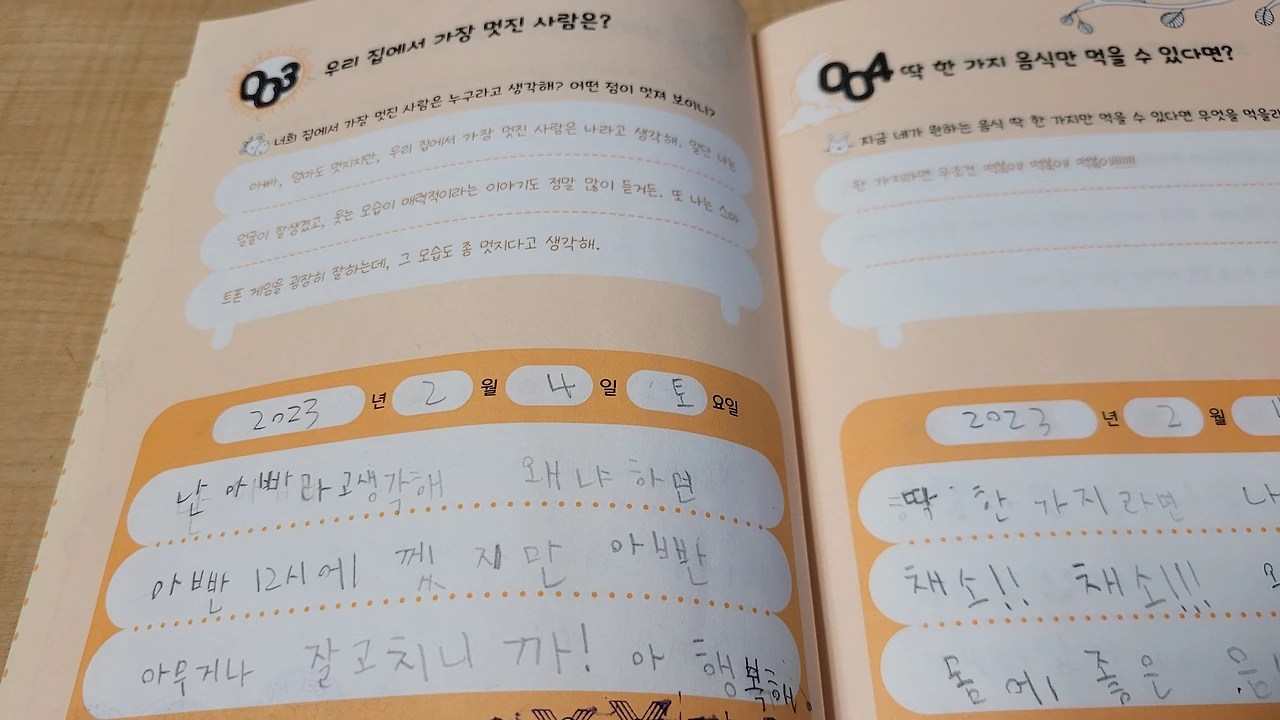 003 우리 집에서 가장 멋진 사람은?
너희 집에서 가장 멋진 사람은 누구라고 생각해? 어떤 점이 멋져 보이니?
아빠, 엄마도 멋지지만, 우리 집에서 가장 멋진 사람은 나라고 생각해. 일단 나는
얼굴이 잘생겼고, 웃는 모습이 매력적이라는 이야기도 정말 많이 듣거든. 또 나는 스마
트폰 게임을 굉장히 잘하는데, 그 모습도 좀 멋지다고 생각해.
2023 년 2 월 4 일 토 요일
난 아빠라고 생각해 왜냐하면
아빤 12시에 깼지만 아빤
아무거나 잘고치니까! 아 행복해
004 딱 한 가지 음식만 먹을 수 있다면?
지금 네가 원하는 음식 딱 한 가지만 먹을 수 있다면 무엇을
한 가지라면 무조건 떡볶이! 떡볶이! 떡볶이!!!!!!!!
2023 년 2 월
딱 한 가지라면
채소!! 채소!!!
몸에 좋은